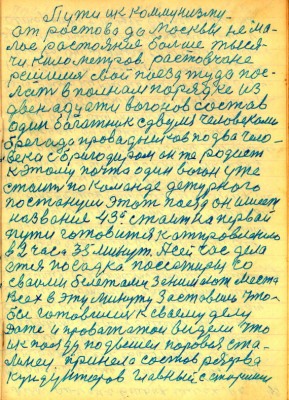 Пути ик коммунизми.
от ростова да Москвы нема-
лое растояние болше тыся-
чи километров. растовчане
решили свой поезд туда пос-
лать в полнам порядке из
двенадцати вогонов состав
один багатник сдвумя человеками
бригада провадников по два чело-
века с бригодиром он же родист
к этому почта один вогон уже
стоит по команде дежурного
постанцыи Этот поезд он имеет
название 43й стоит на первай
пути готовится к отправлению
в 2 часа 35 минут. А сей час дела
ется посадка пассажиры со
своими билетами Занимают места
Всех в эту минуту Заставило что-
бы готовились к своему делу
Дате и проважатаи видели что
их поезду подвешен паровоз ста-
линец. принела состов резерва
кундукторов главный с старшим